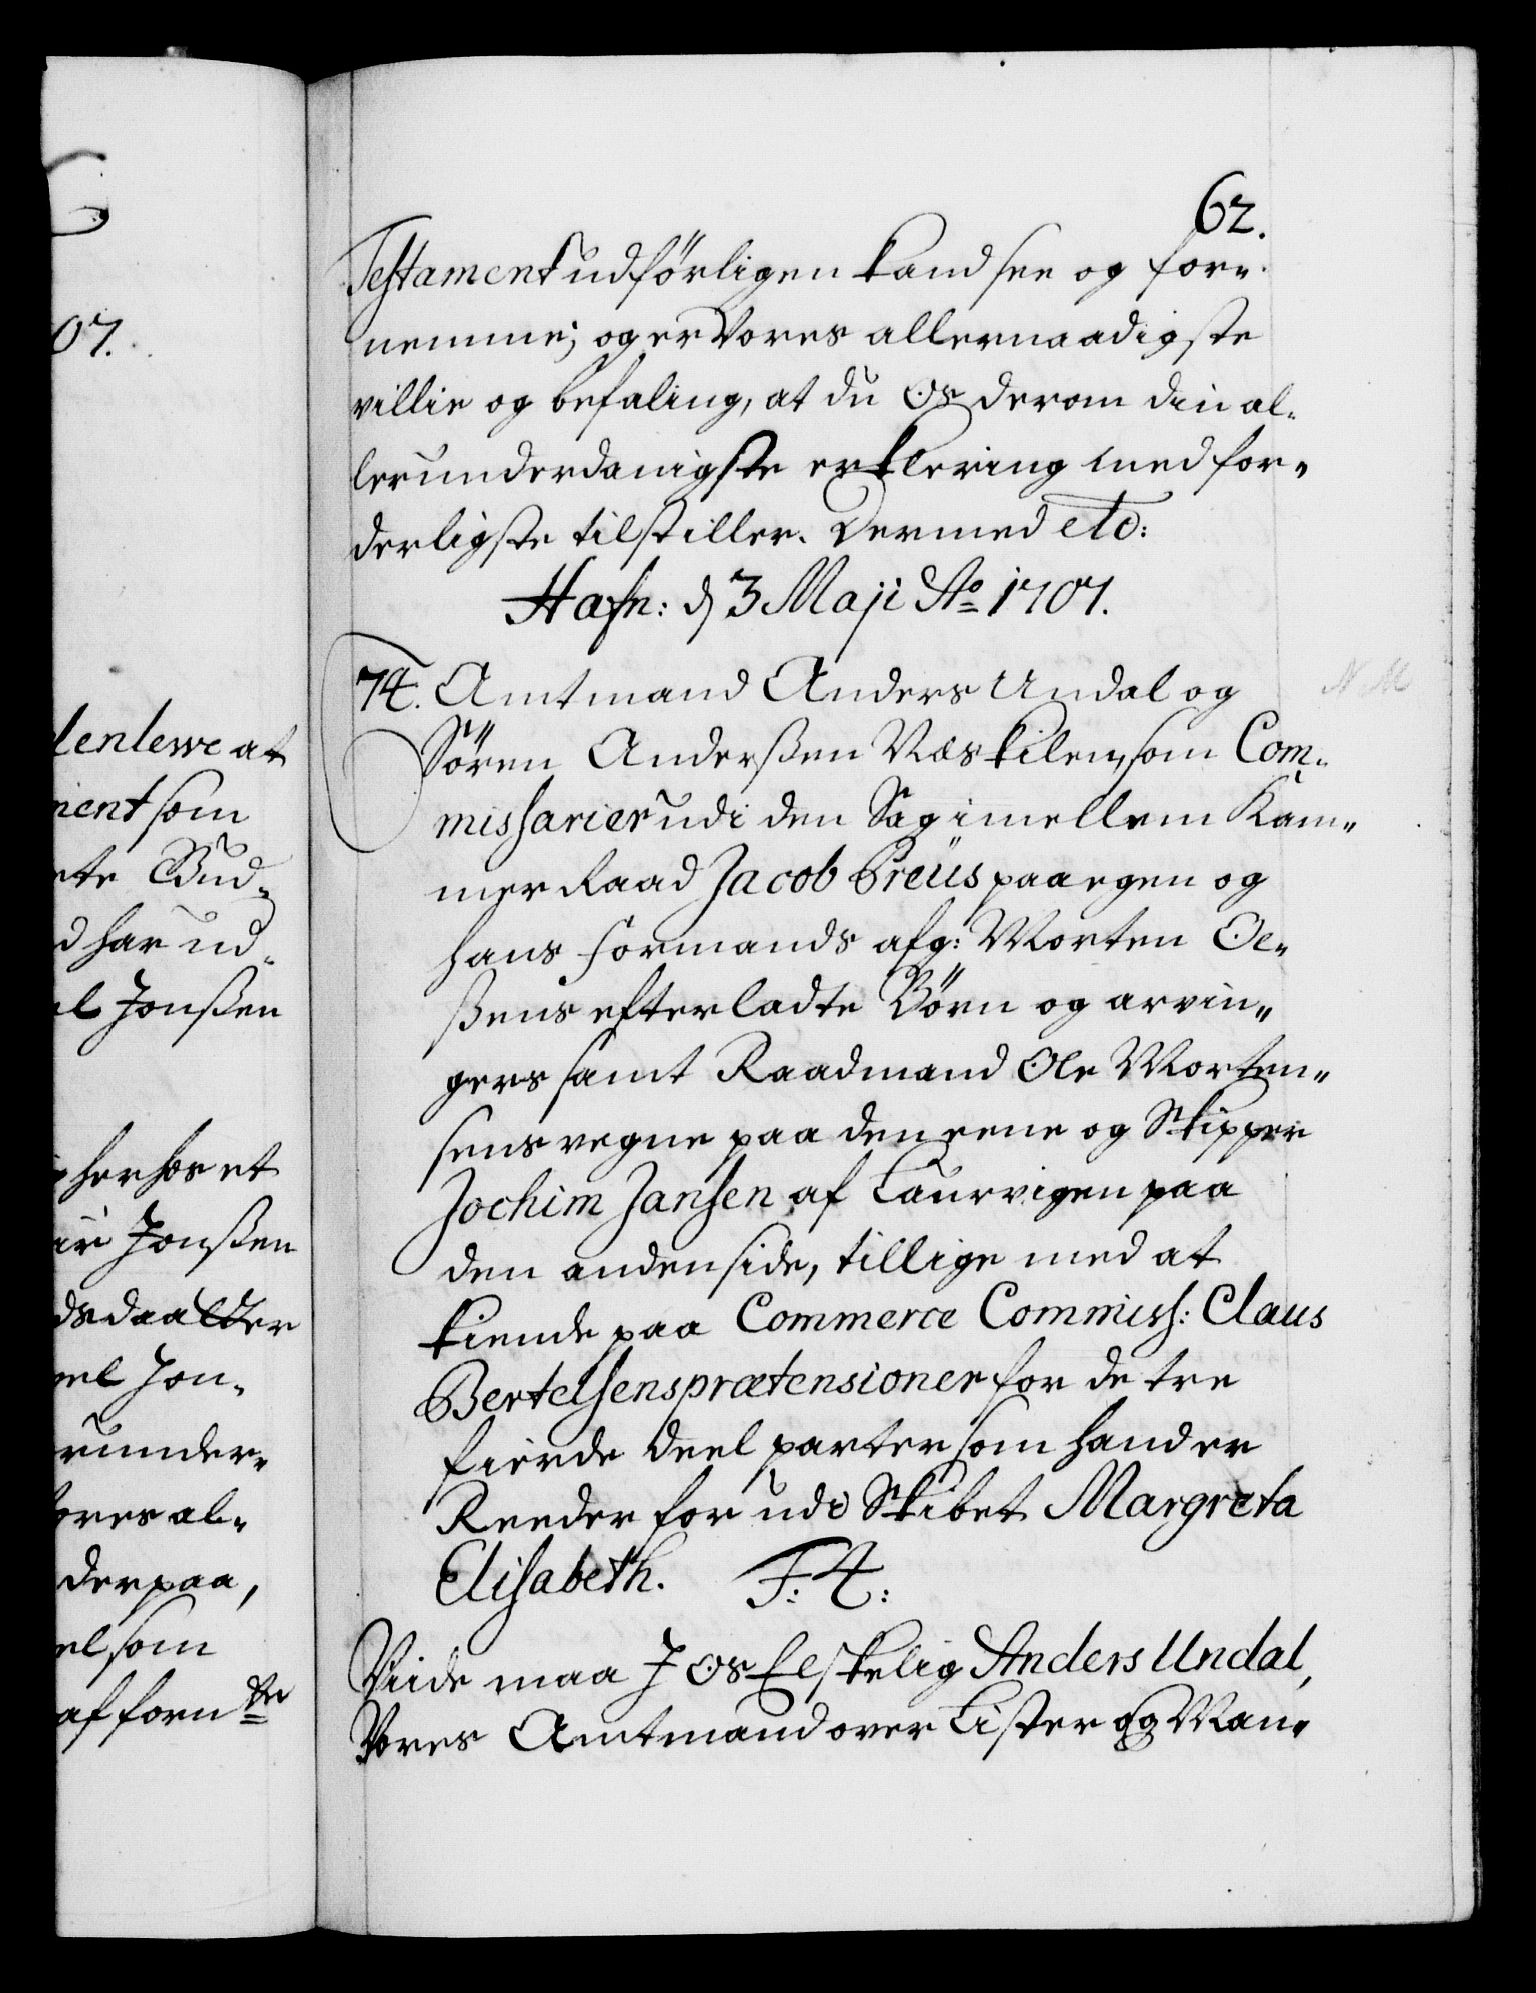 62.
Testament udförligen kand see og for-
nemme; og er Vores allernaadigste
villie og befaling, at du Os derom din al-
lerunderdanigste erklering med for-
derligste tilstiller. Dermed etc:
Hafn: d 3 Maji Ao 1707.
74. Amtmand Anders Undal og
Sören Anderssen Næskilen, som Com-
missarier udi den Sag imellem Kam-
mer Raad Jacob Preüs paa egen og
hans formands afg: Morten Ol-
ssens efterladte Börn og arvin-
gers samt Raadmand Ole Morten-
sens vegne paa den eene og Skipper
Jochim Jansen af Laurvigen paa
den anden side, tillige med at
kiende paa Commerce Commiss: Claus
Bertelsens prætensioner for de tre
fierde deel parter som hand er
Reeder for udi Skibet Margreta
Elisabeth. F: 4:
Viide maa I Os Elskelig Anders Undal,
Vores Amtmand over Lister og Man-
07.
lenlewe at
ment som
ete Bud-
d har ud-
el Jonssen
her hos et
Jonssen
dsdaatter
el Jon-
runder-
ores al-
derpaa,
el som
af forn te
N M